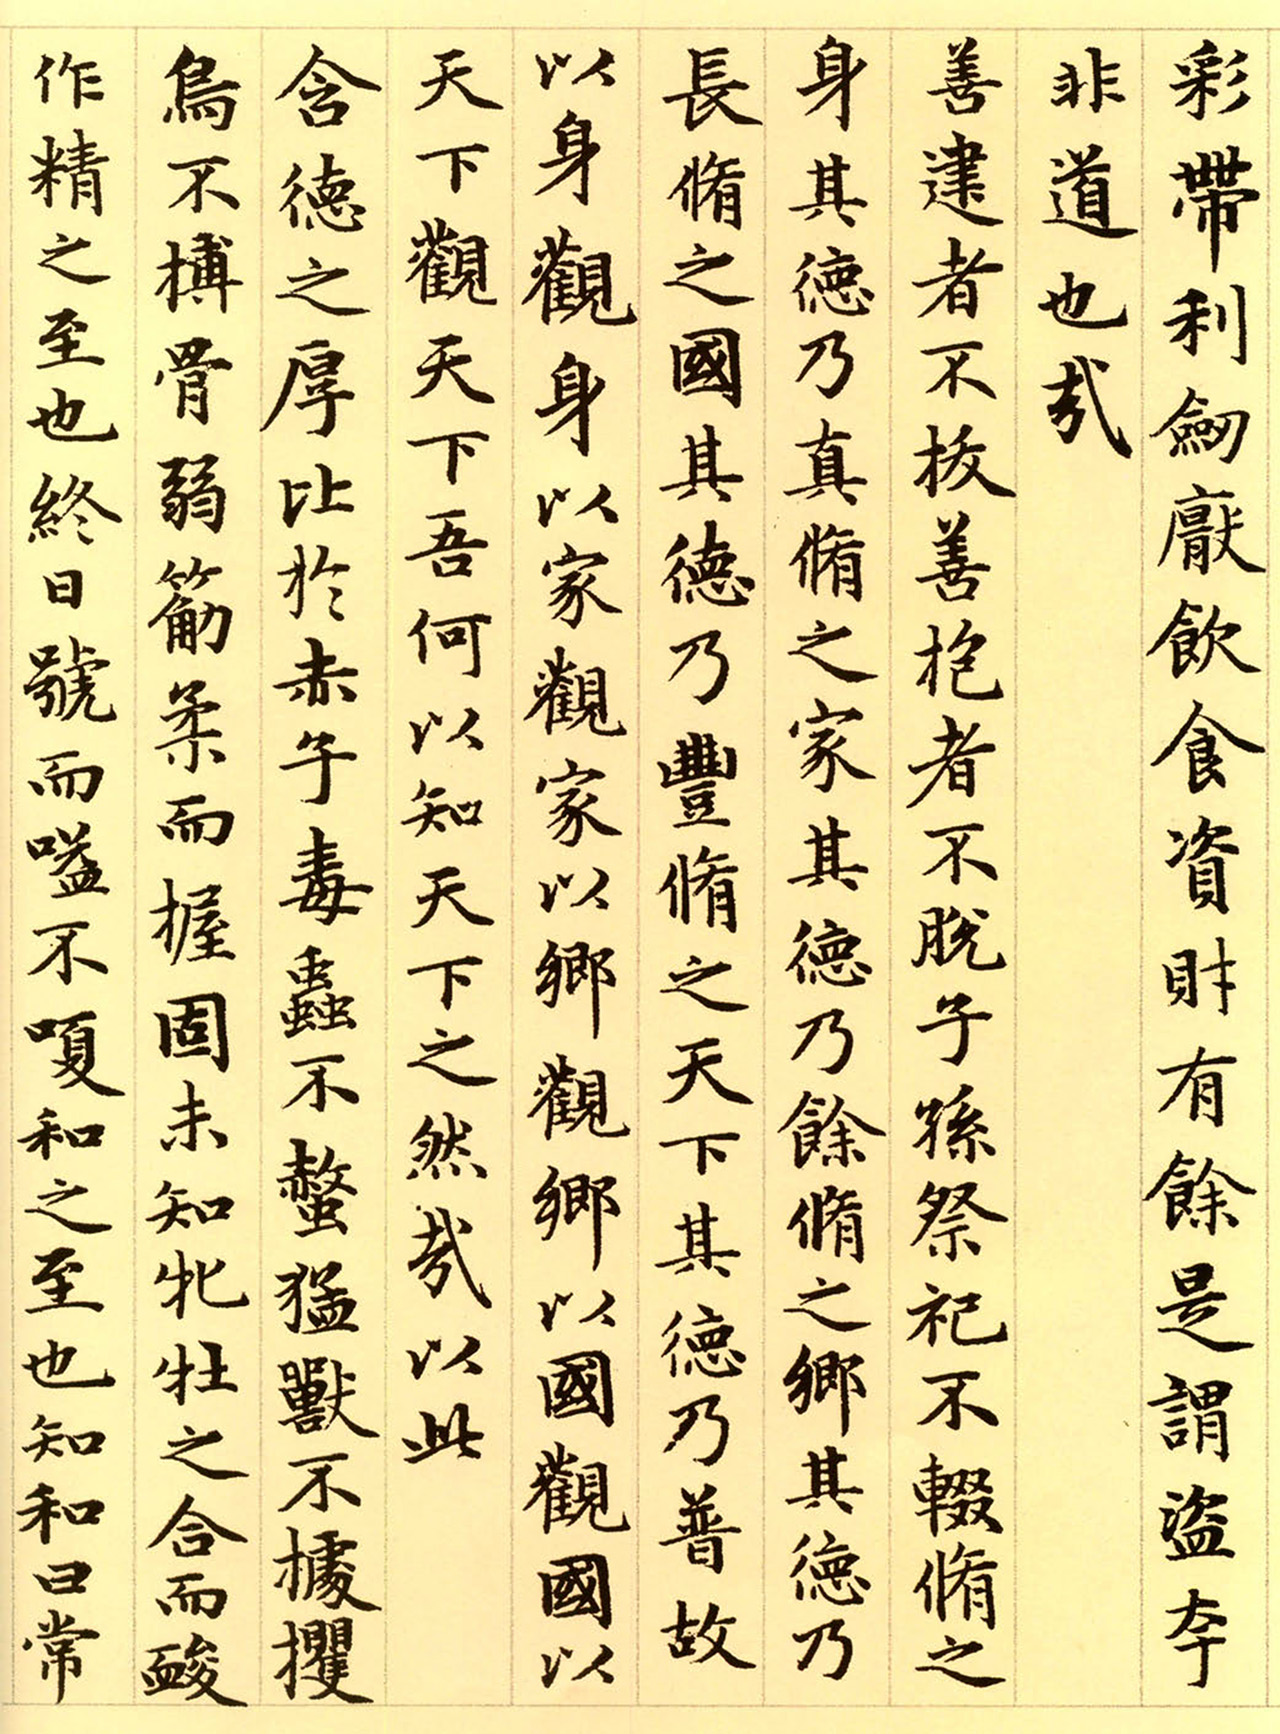 彩帶利劒厭飲食資財有餘是謂盜夸
非道也哉
善建者不拔善抱者不脫子孫祭祀不輟脩之
身其德乃真脩之家其德乃餘脩之鄉其德乃
長脩之國其德乃豐脩之天下其德乃普故
以身觀身以家觀家以鄉觀鄉以國觀國以
天下觀天下吾何以知天下之然哉以此
含德之厚比於赤子毒蟲不螫猛獸不據攫
鳥不搏骨弱筋柔而握固未知牝牡之合而朘
作精之至也終日號而嗌不嗄和之至也知和曰常